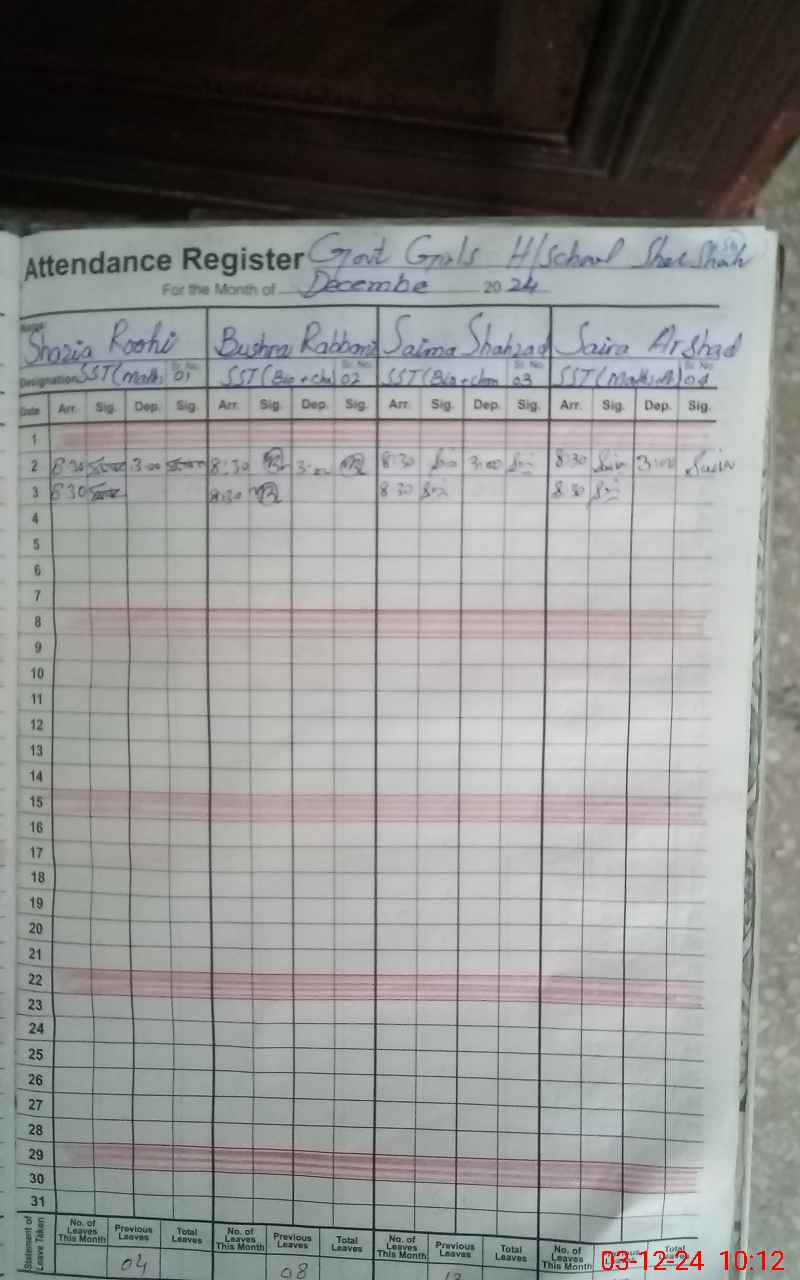 Attendance Register Govt Girls H/School Sher Shah
For the Month of Decembe 2024
Name
Shazia Roohi Bushra Rabbani Saima Shahzad Saira Arshad
Designation SST(Math) Sr. No. 01 SST(Bio+che) Sr. No. 02 SST(Bio+chem Sr. No. 03 SST(Math) Sr. No. 04
Date Arr. Sig. Dep. Sig. Arr. Sig. Dep. Sig. Arr. Sig. Dep. Sig. Arr. Sig. Dep. Sig.
1
2 8:30 3:00 8:30 3:00 8:30 3:00 8:30 3:00 Saira
3 8:30 8:30 8:30 8:30
4
5
6
7
8
9
10
11
12
13
14
15
16
17
18
19
20
21
22
23
24
25
26
27
28
29
30
31
Statement of Leave Taken No. of Leaves This Month Previous Leaves Total Leaves No. of Leaves This Month Previous Leaves Total Leaves No. of Leaves This Month Previous Leaves Total Leaves No. of Leaves This Month Leaves Total Leaves
04 08
03-12-24 10:12